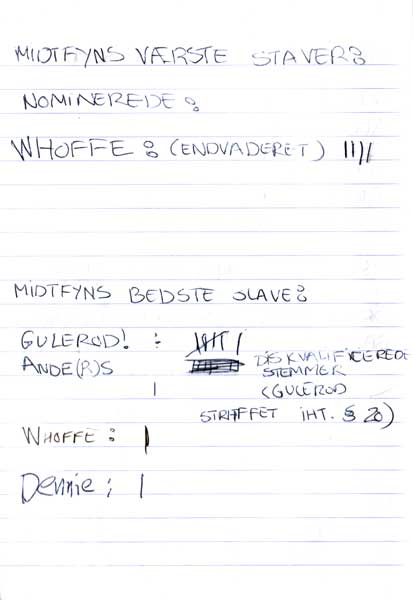 MIDTFYNS VÆRSTE STAVER:
NOMINEREDE:
WHOFFE: (ENDVADERET) ||||
MIDTFYNS BEDSTE SLAVE:
GULEROD! : |||| |
ANDE(R)S DISKVALIFICEREDE
STEMMER
| (GULEROD
STRAFFET IHT. § 20)
WHOFFE: |
Dennie: |